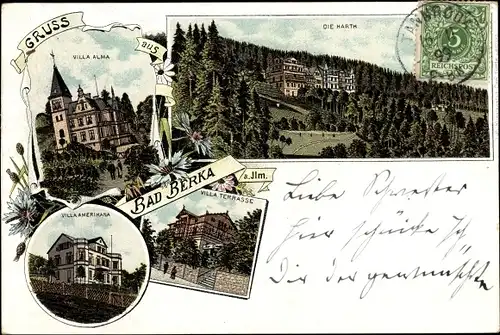 GRUSS aus
VILLA ALMA
DIE HARTH
5
REICHSPOST
BAD BERKA a. Ilm.
VILLA TERRASSE
VILLA AMERIKANA
Liebe Schwester
hier schicke ich
Dir der gewünschte